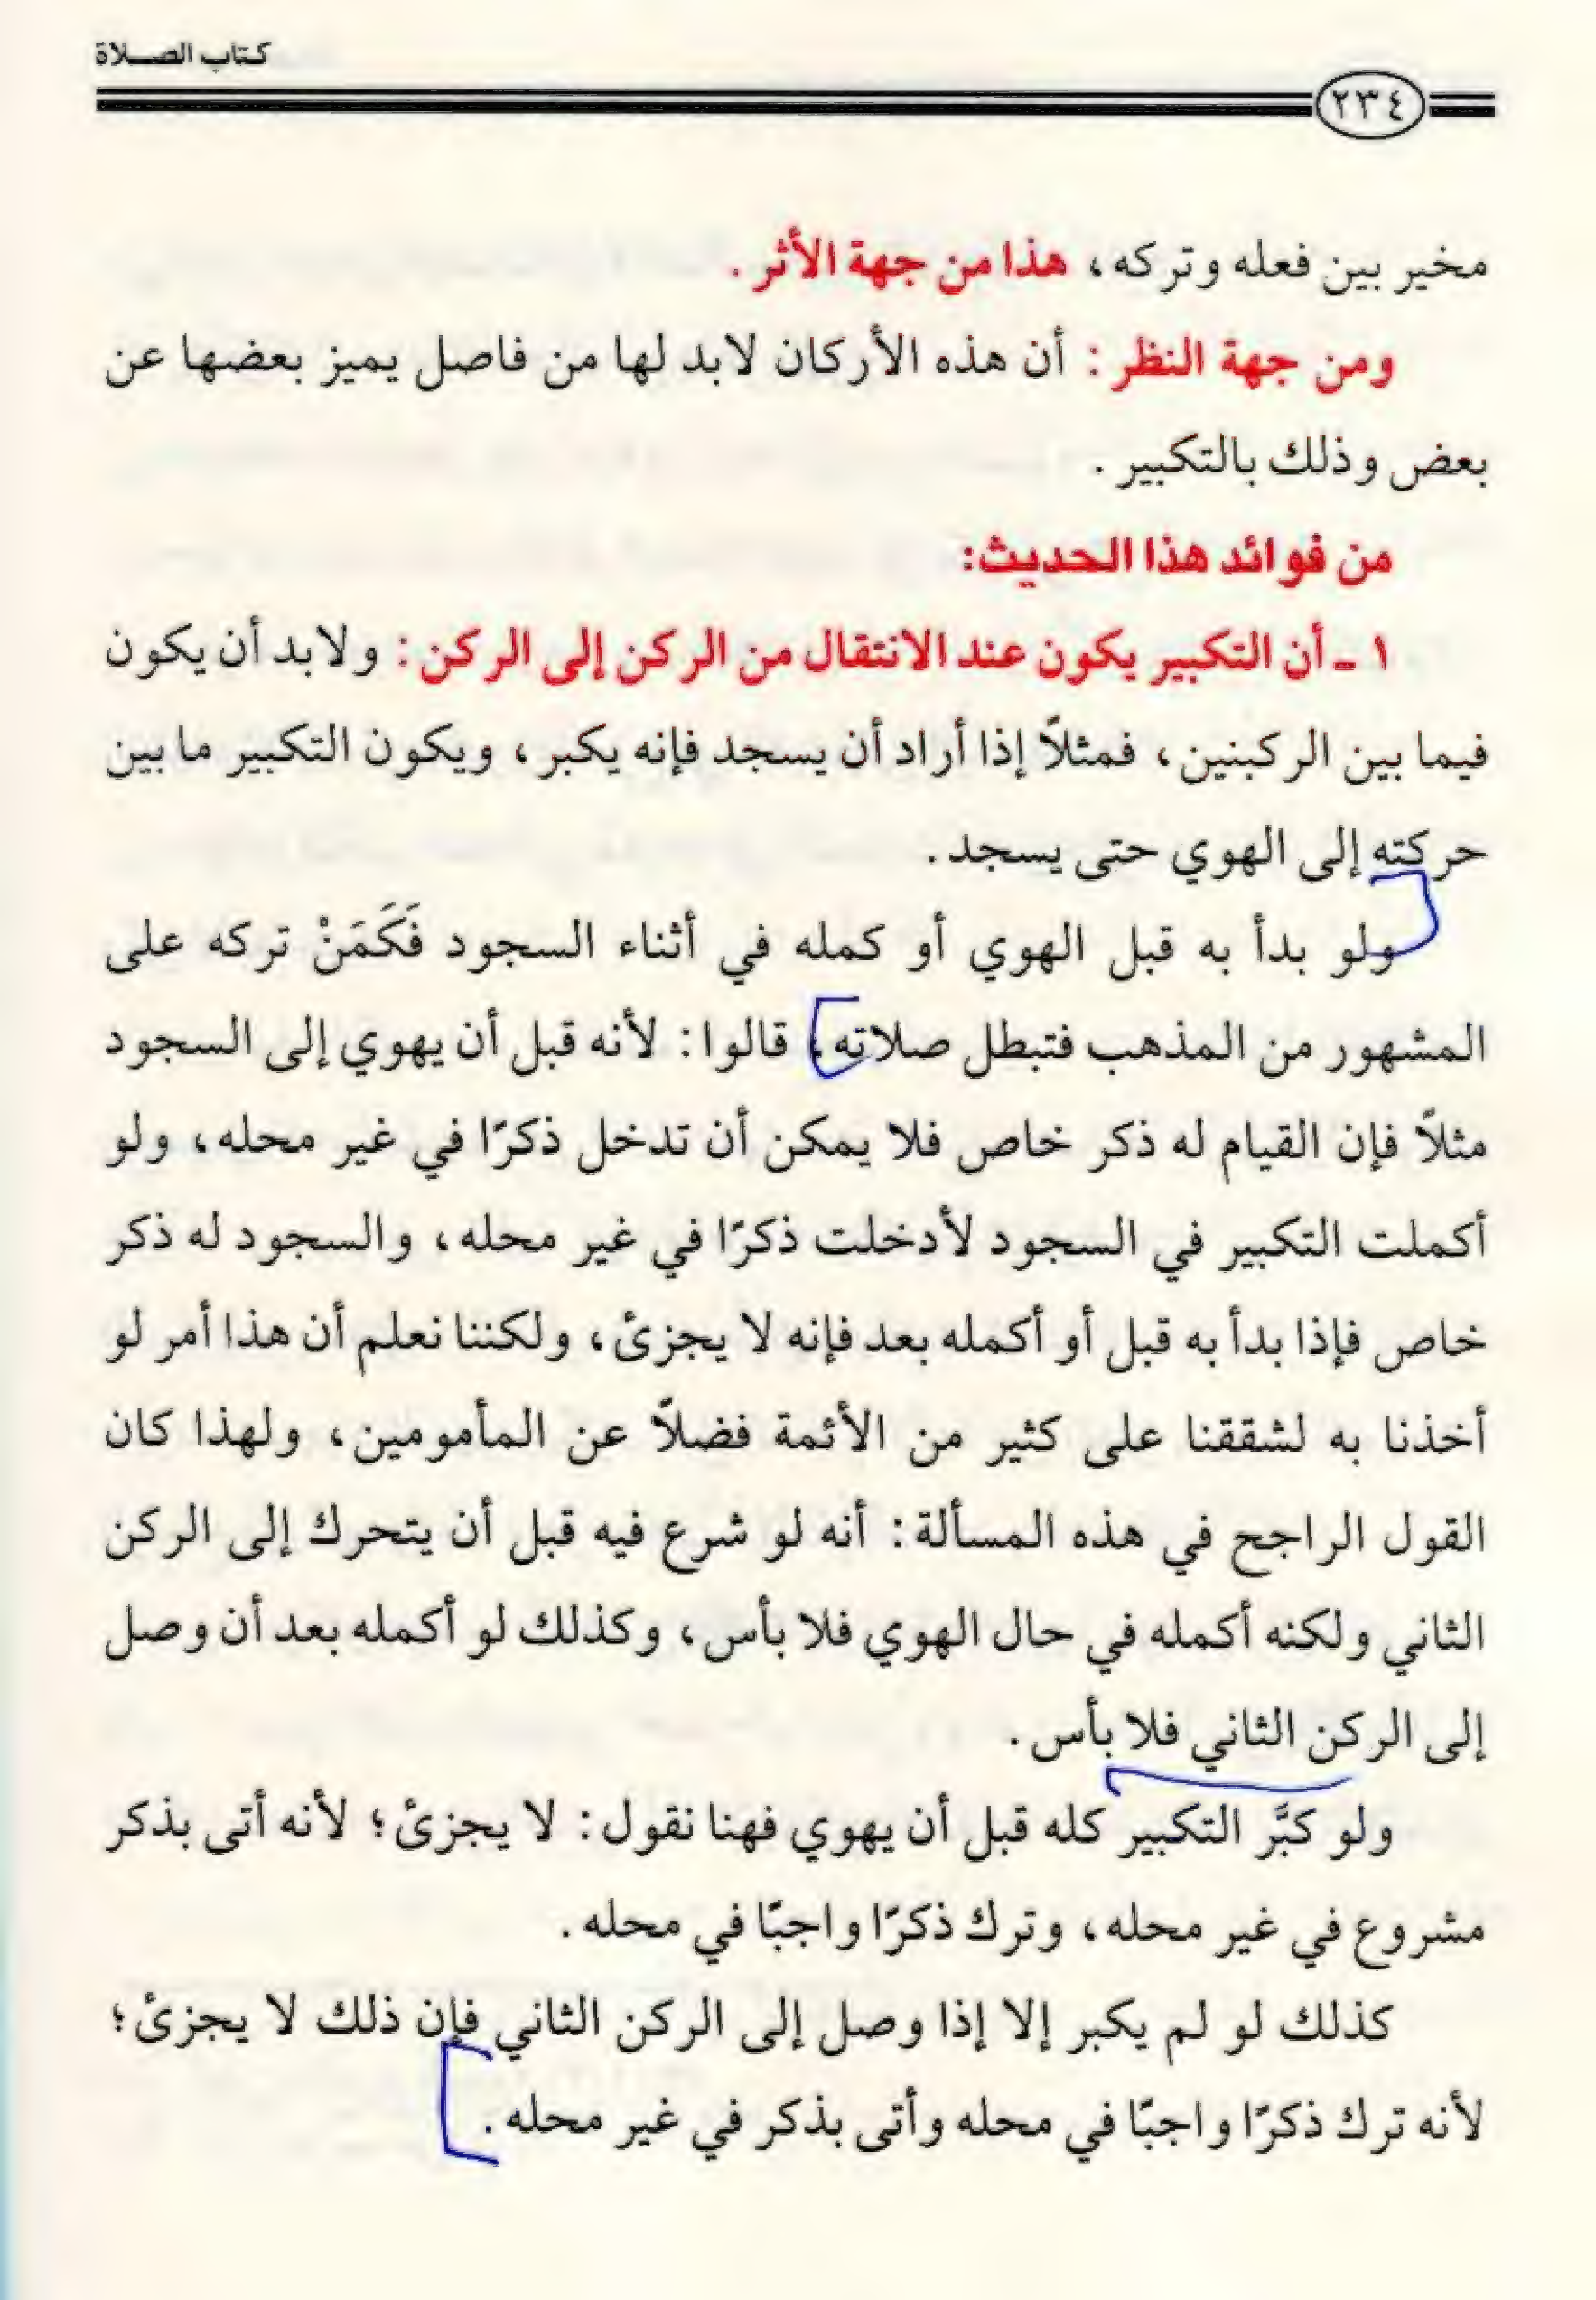 كتاب الصلاة
٢٣٤
مخير بين فعله وتركه، هذا من جهة الأثر.
ومن جهة النظر: أن هذه الأركان لابد لها من فاصل يميز بعضها عن
بعض وذلك بالتكبير.
من فوائد هذا الحديث:
١ - أن التكبير يكون عند الانتقال من الركن إلى الركن: ولابد أن يكون
فيما بين الركبنين، فمثلاً إذا أراد أن يسجد فإنه يكبر، ويكون التكبير ما بين
حركته إلى الهوي حتى يسجد.
ولو بدأ به قبل الهوي أو كمله في أثناء السجود فَكَمَنْ تركه على
المشهور من المذهب فتبطل صلاته، قالوا: لأنه قبل أن يهوي إلى السجود
مثلاً فإن القيام له ذكر خاص فلا يمكن أن تدخل ذكرًا في غير محله، ولو
أكملت التكبير في السجود لأدخلت ذكرًا في غير محله، والسجود له ذكر
خاص فإذا بدأ به قبل أو أكمله بعد فإنه لا يجزئ، ولكننا نعلم أن هذا أمر لو
أخذنا به لشققنا على كثير من الأئمة فضلاً عن المأمومين، ولهذا كان
القول الراجح في هذه المسألة: أنه لو شرع فيه قبل أن يتحرك إلى الركن
الثاني ولكنه أكمله في حال الهوي فلا بأس، وكذلك لو أكمله بعد أن وصل
إلى الركن الثاني فلا بأس.
ولو كبَّر التكبير كله قبل أن يهوي فهنا نقول: لا يجزئ؛ لأنه أتى بذكر
مشروع في غير محله، وترك ذكرًا واجبًا في محله.
كذلك لو لم يكبر إلا إذا وصل إلى الركن الثاني فإن ذلك لا يجزئ؛
لأنه ترك ذكرًا واجبًا في محله وأتى بذكر في غير محله.